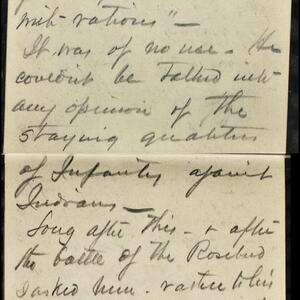 with rations" —
It was of no use — He
couldn't be talked into
any opinion of the
staying qualities
of Infantry against
Indians —
Long after this — & after
the battle of the Rosebud
I asked him — rather to his